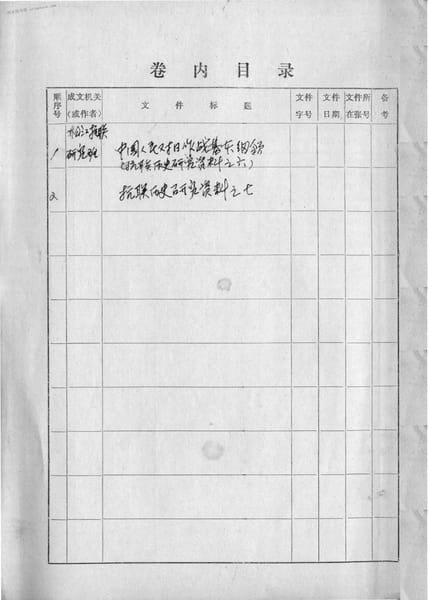 卷内目录
顺序号
成文机关(或作者)
文件标题
文件字号
文件日期
文件所在张号
备考
1
抗联
研究班
中国人民对日作战基本纲领
(抗联历史研究资料之六)
2
抗联历史研究资料之七